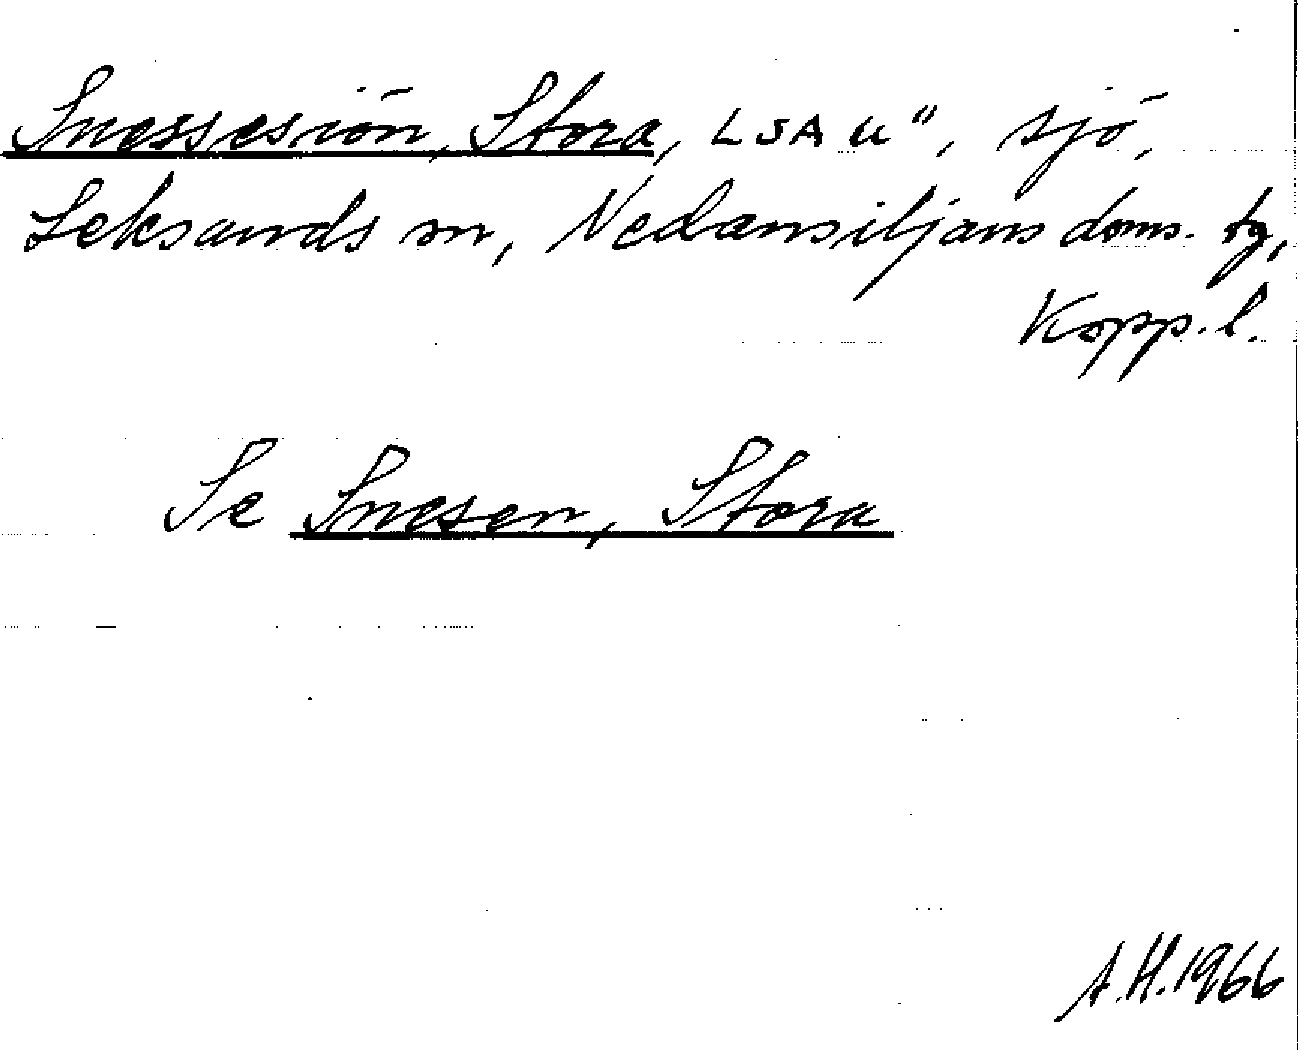 Snessesiön, Stora, LSA u", sjö,
Leksands sn, Nedansiljans doms. tg,
Kopp. l.
Se Snesen, Stora
A.H. 1966